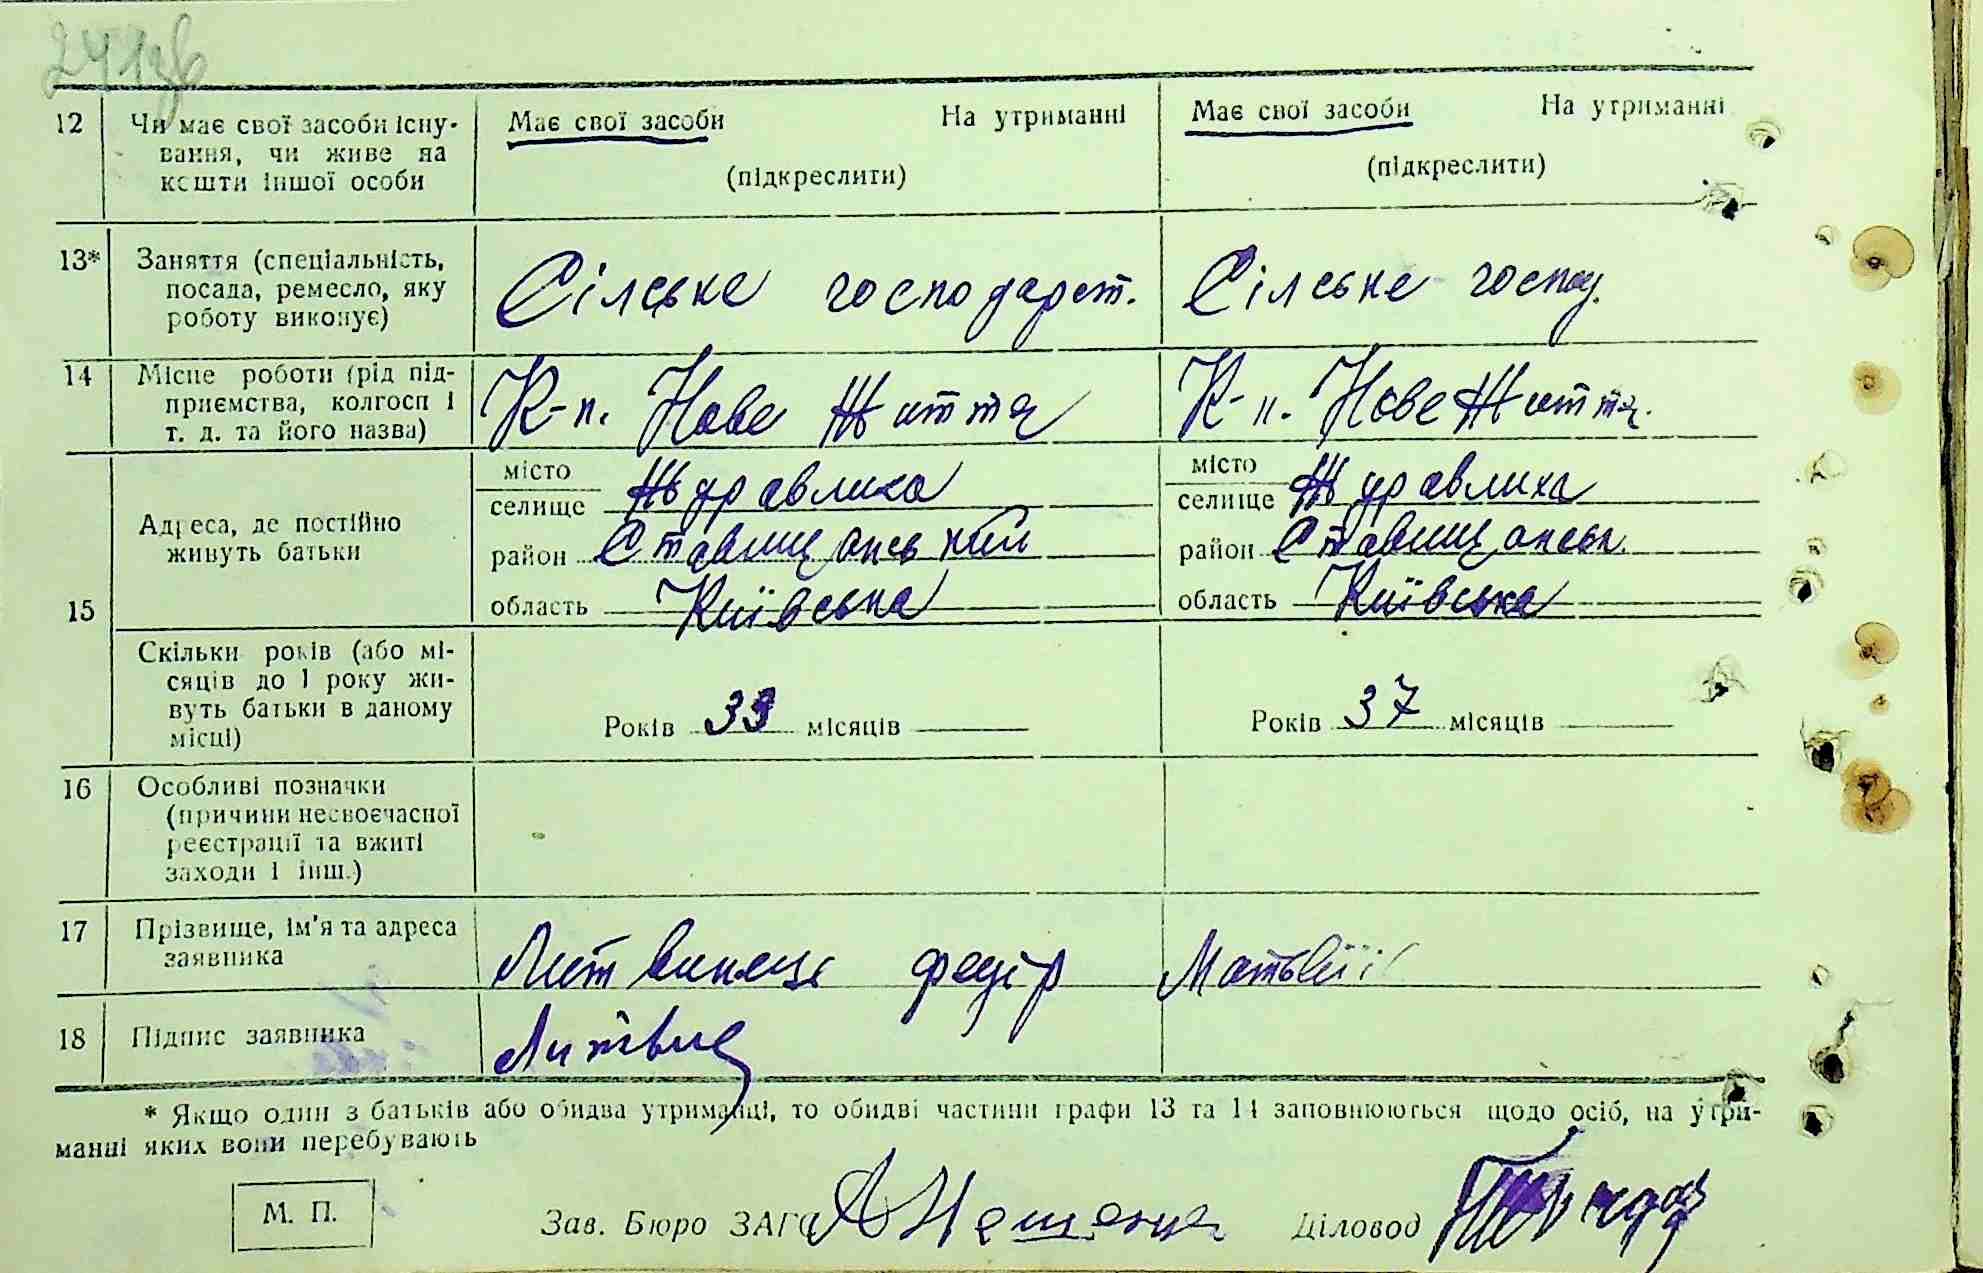 241зв
12 Чи має свої засоби існу- Має свої засоби На утриманні Має свої засоби На утриманні
вання, чи живе на
кошти іншої особи (підкреслити) (підкреслити)
13* Заняття (спеціальність,
посада, ремесло, яку Сілське господарст. Сілське господ.
роботу виконує)
14 Місце роботи (рід під-
приємства, колгосп і К-п. Нове Життя К-п. Нове Життя.
т. д. та його назва)
місто місто
селище Журавлиха селище Журавлиха
15 Адреса, де постійно
живуть батьки район Ставищанський район Ставищанськ.
область Київська область Київська
Скільки років (або мі-
сяців до 1 року жи-
вуть батьки в даному Років 39 місяців Років 37 місяців
місці)
16 Особливі позначки
(причини несвоєчасної
реєстрації та вжиті
заходи і інш.)
17 Прізвище, ім'я та адреса Литвинець федір Матвій
заявника
18 Підпис заявника
* Якщо один з батьків або обидва утриманці, то обидві частини графи 13 та 14 заповнюються щодо осіб, на утри-
манні яких вони перебувають
М. П. Зав. Бюро ЗАГС Діловод